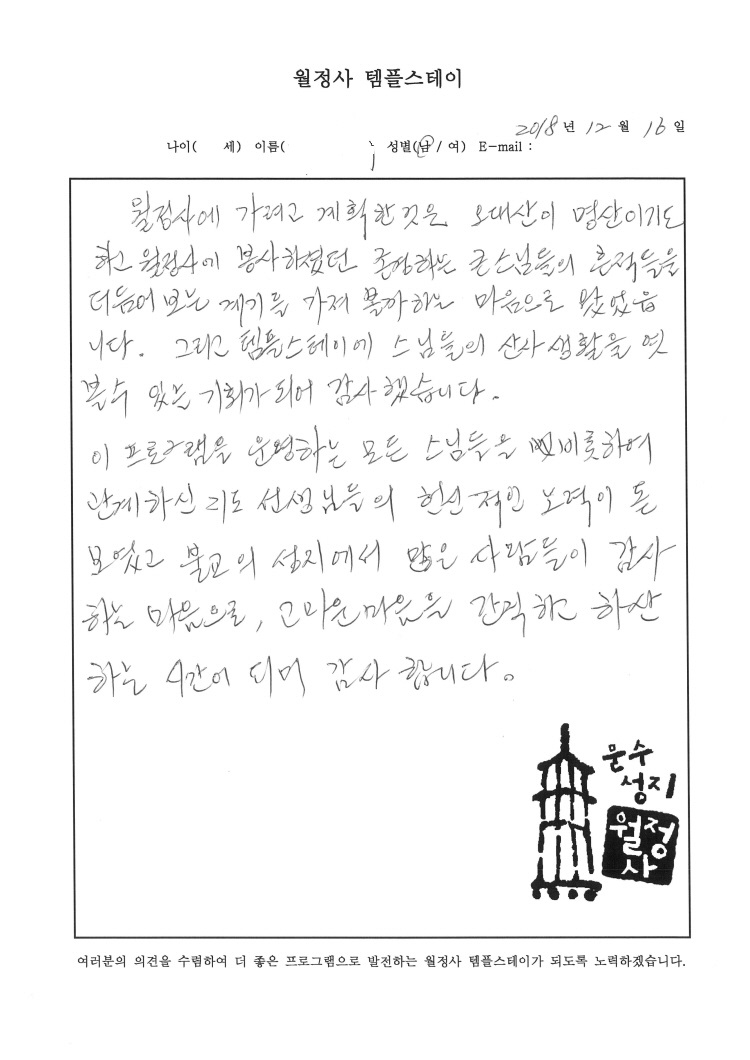 월정사 템플스테이
2018년 12월 16일
나이( 세) 이름( ) 성별(남 / 여) E-mail :
월정사에 가려고 계획한것은 오대산이 명산이기도
하고 월정사에 봉사하셨던 존경하는 큰스님들의 흔적들을
더듬어 보는 계기를 가져 볼까하는 마음으로 왔었읍
니다. 그리고 템플스테이에 스님들의 산사생활을 엿
볼수 있는 기회가 되어 감사했습니다.
이 프로그램을 운영하는 모든 스님들을 비롯하여
관계하신 지도 선생님들의 헌신적인 노력이 돋
보였고 불교의 성지에서 많은 사람들이 감사
하는 마음으로, 고마운마음을 간직하고 하산
하는 시간이 되며 감사 합니다.
문수
성지
월정
사
여러분의 의견을 수렴하여 더 좋은 프로그램으로 발전하는 월정사 템플스테이가 되도록 노력하겠습니다.